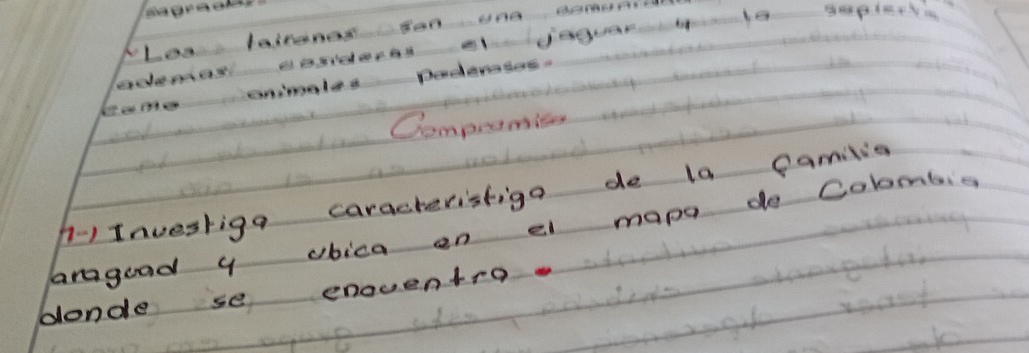 sagrado
Los taironas son una
ademas cosideras el jaguar y la
como animales poderosos.
Compromiso
1-) Investiga caracteristiga de la familia
araguad y ubica en el mapa de Colombia
donde se encuentra